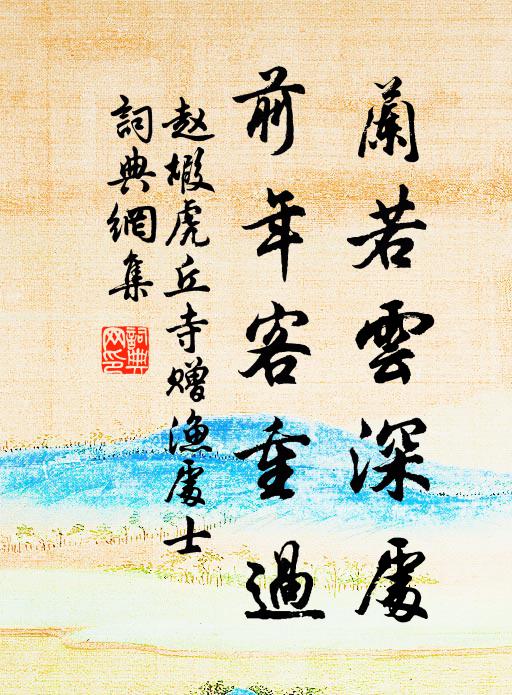 蘭若雲深處
前年客重過
赵嘏虎丘寺贈漁處士
詞典網集
詞典網印